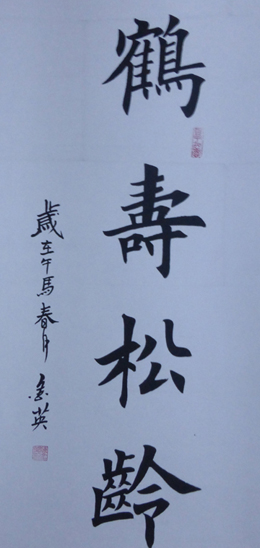 鶴壽松齡
歲在午馬春月 金英